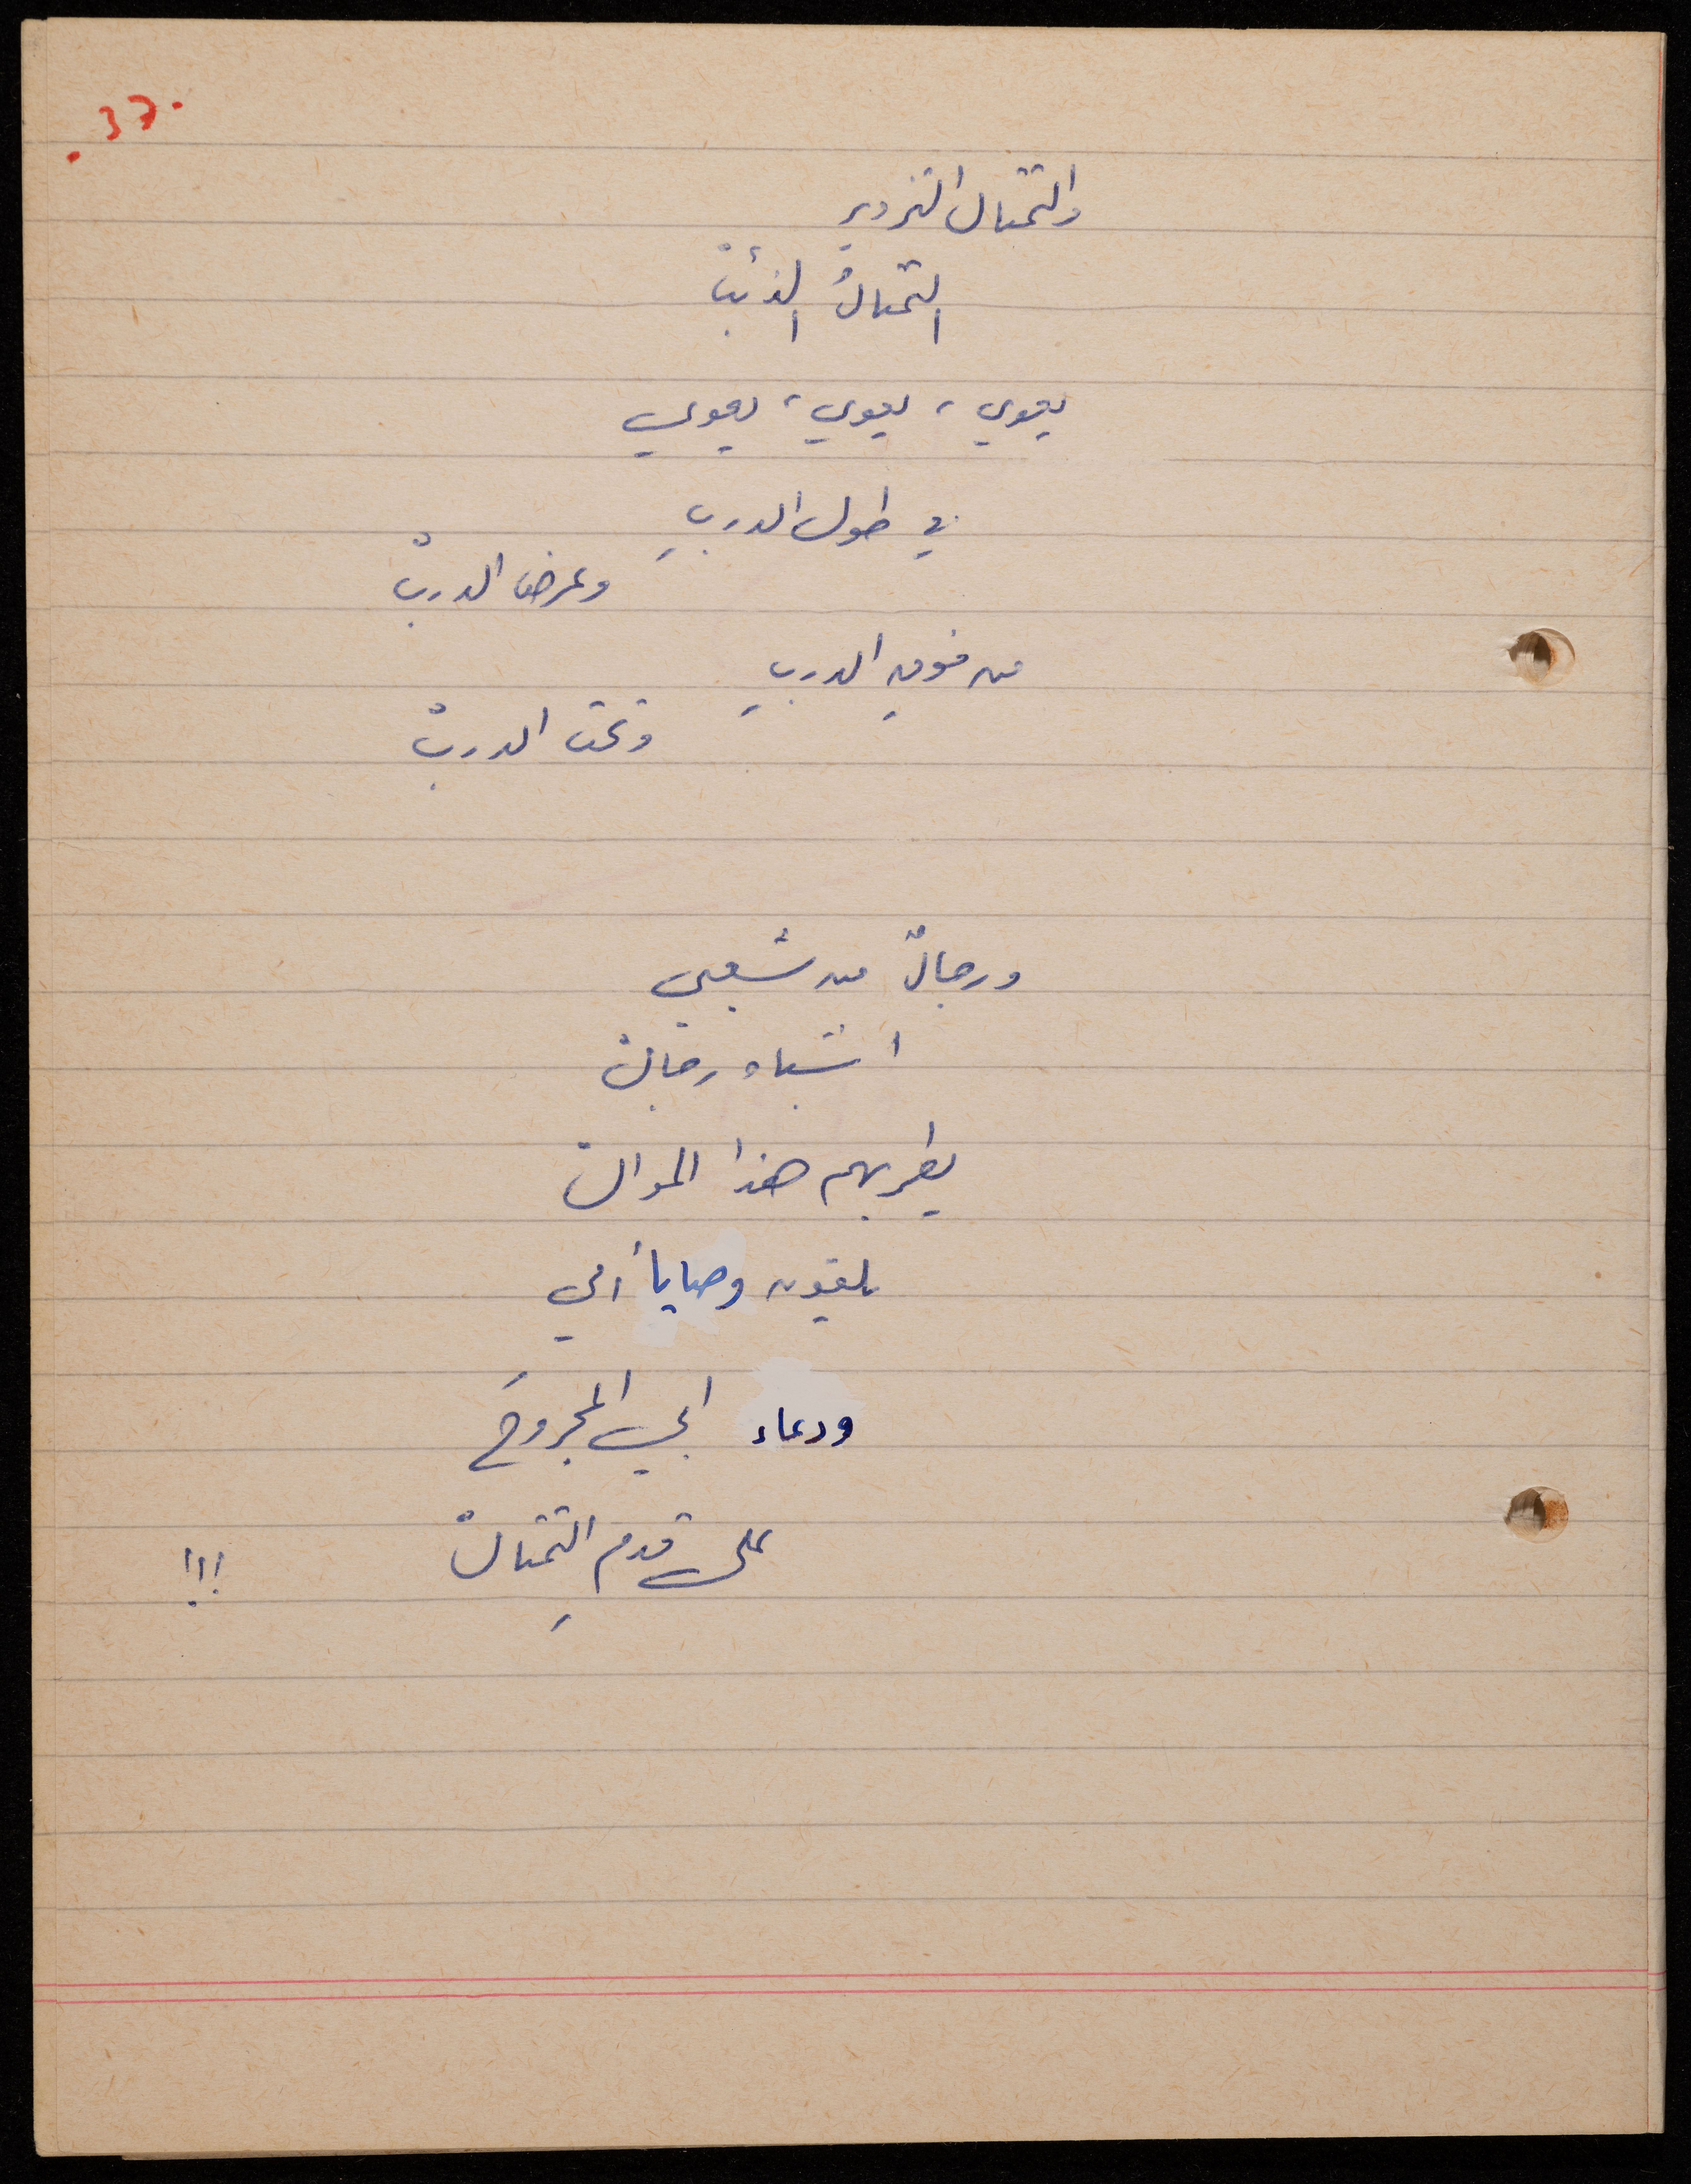 37.
والتمثال التزوير
التمثالُ الذئبْ
يعوي، يعوي، يعوي
في طول الدربِ
وعرض الدربْ
من فوقِ الدربِ
وتحت الدربْ
ورجالٌ من شعبي
اشباه رجالْ
يطربهم هذا الموالْ
يلقون وصايا أمي
ودعاء ابي المجروحَ
على قدمِ التمثالْ !!!